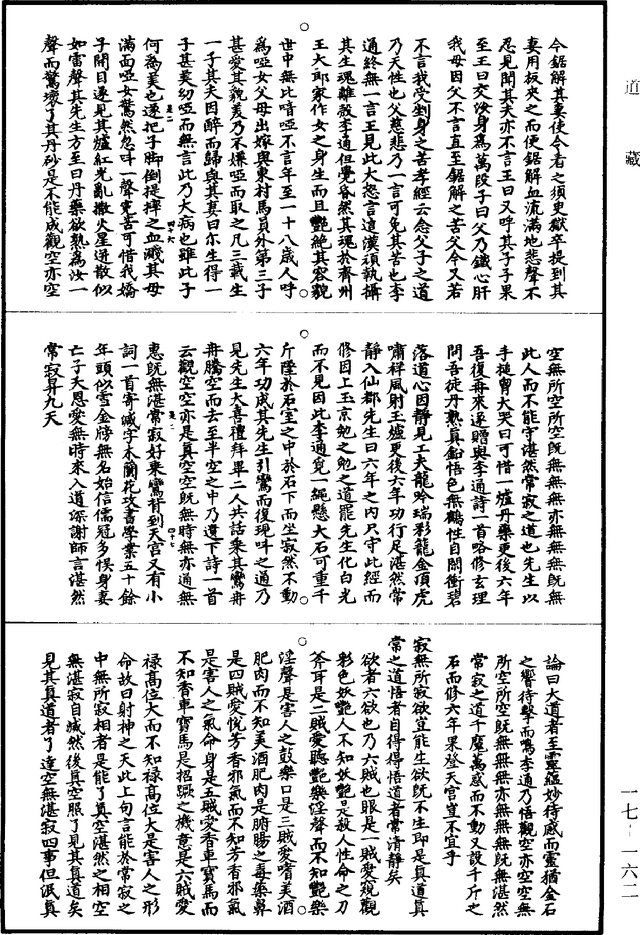 道藏
令鋸解其妻使令者之須臾獄卒提到其
妻用板夾之而使鋸解血流滿地悲聲不
忍見聞其夫亦不言王曰又呼其子子果
至王曰交汝身為萬段子曰父乃鐵心肝
我母因父不言直至鋸解之苦父今又若
不言我受剉身之苦孝經云念父子之道
乃天性也父慈悲乃一言可免其苦也李
通終無一言王見此大怒言道漢頑執攝
其生魂離殼李通但覺昏然其魂於齊州
王大郎家作女之身生而且艷絕其容貌
世中無比喑啞不言年至一十八歲人呼
為啞女父母出嫁與東村馬員外第三子
甚愛其貌美乃不嫌啞而取之凡三載生
一子其夫因醉而歸與其妻曰尔生得一
子甚美幼啞而無言此乃大病也雖此子
何為美也遂把子脚倒提摔之血濺其母
滿面啞女驚然忽叫一聲哀苦可惜我嬌
子開目遂見其爐紅光亂撒火星迸散似
如雷聲其先生方至曰丹藥欲熟為汝一
聲而驚壞了其丹砂是不能成觀空亦空
空無所空所空既無無無亦無無無既無
此人而不能守湛然常寂之道也先生以
手搥胷大哭曰可惜一爐丹藥更後六年
吾復再來遂贈與李通詩一首略修玄理
問吾徒丹熟真鉛悟色無鶴性自閒衝碧
落道心因靜見工夫龍吟瑞彩龍金頂虎
嘯祥風射玉爐更後六年功行足湛然常
靜入仙都先生曰六年之內只守此經而
修因上玉京勉之勉之道罷先生化白光
而不見因此李通覓一繩懸大石可重千
斤墜於石室之中於石下而坐寂然不動
六年功成其先生引鸞而復現叫之通乃
見先生大喜禮拜畢二人共話乘其鸞冉
冉騰空而去至半空之中乃遺下詩一首
云觀空空亦是真空空既無時無亦通無
惠既無湛常寂好乘鸞背到天宮又有小
詞一首寄減字木蘭花攻書學業五十餘
年頭似雪金牓無名始信儒冠多悮身妻
亡子夭恩愛無時來入道深謝師言湛然
常寂昇九天
論曰大道者至靈蘊妙待感而靈猶金石
之響待擊而鳴李通乃悟觀空亦空空無
所空所空既無無無亦無無無既無湛然
常寂之道千魔萬感而不動又設千斤之
石而修六年果登天宮豈不宜乎
寂無所寂欲豈能生欲既不生即是真道真
常之道悟者自得得悟道者常清靜矣
欲者六欲也乃六賊也眼是一賊愛觀觀
彩色妖艷人不知妖艷是殺人性命之刀
斧耳是二賊愛聽艷樂淫聲而不知艷樂
淫聲是害人之鼓樂口是三賊愛飡美酒
肥肉而不知美酒肥肉是腑腸之毒藥鼻
是四賊愛悅芳香邪氣而不知芳香邪氣
是害人之氣命身是五賊愛香車寶馬而
不知香車寶馬是招蹶之機意是六賊愛
祿高位大而不知祿高位大是害人之形
命故曰射神之天此上句言能於常寂之
中無所寂相者是能了真空湛然之相空
無湛寂自滅然後真空照了見其真道矣
見其真道者了達空無湛寂四事但泯真
一七–一六二